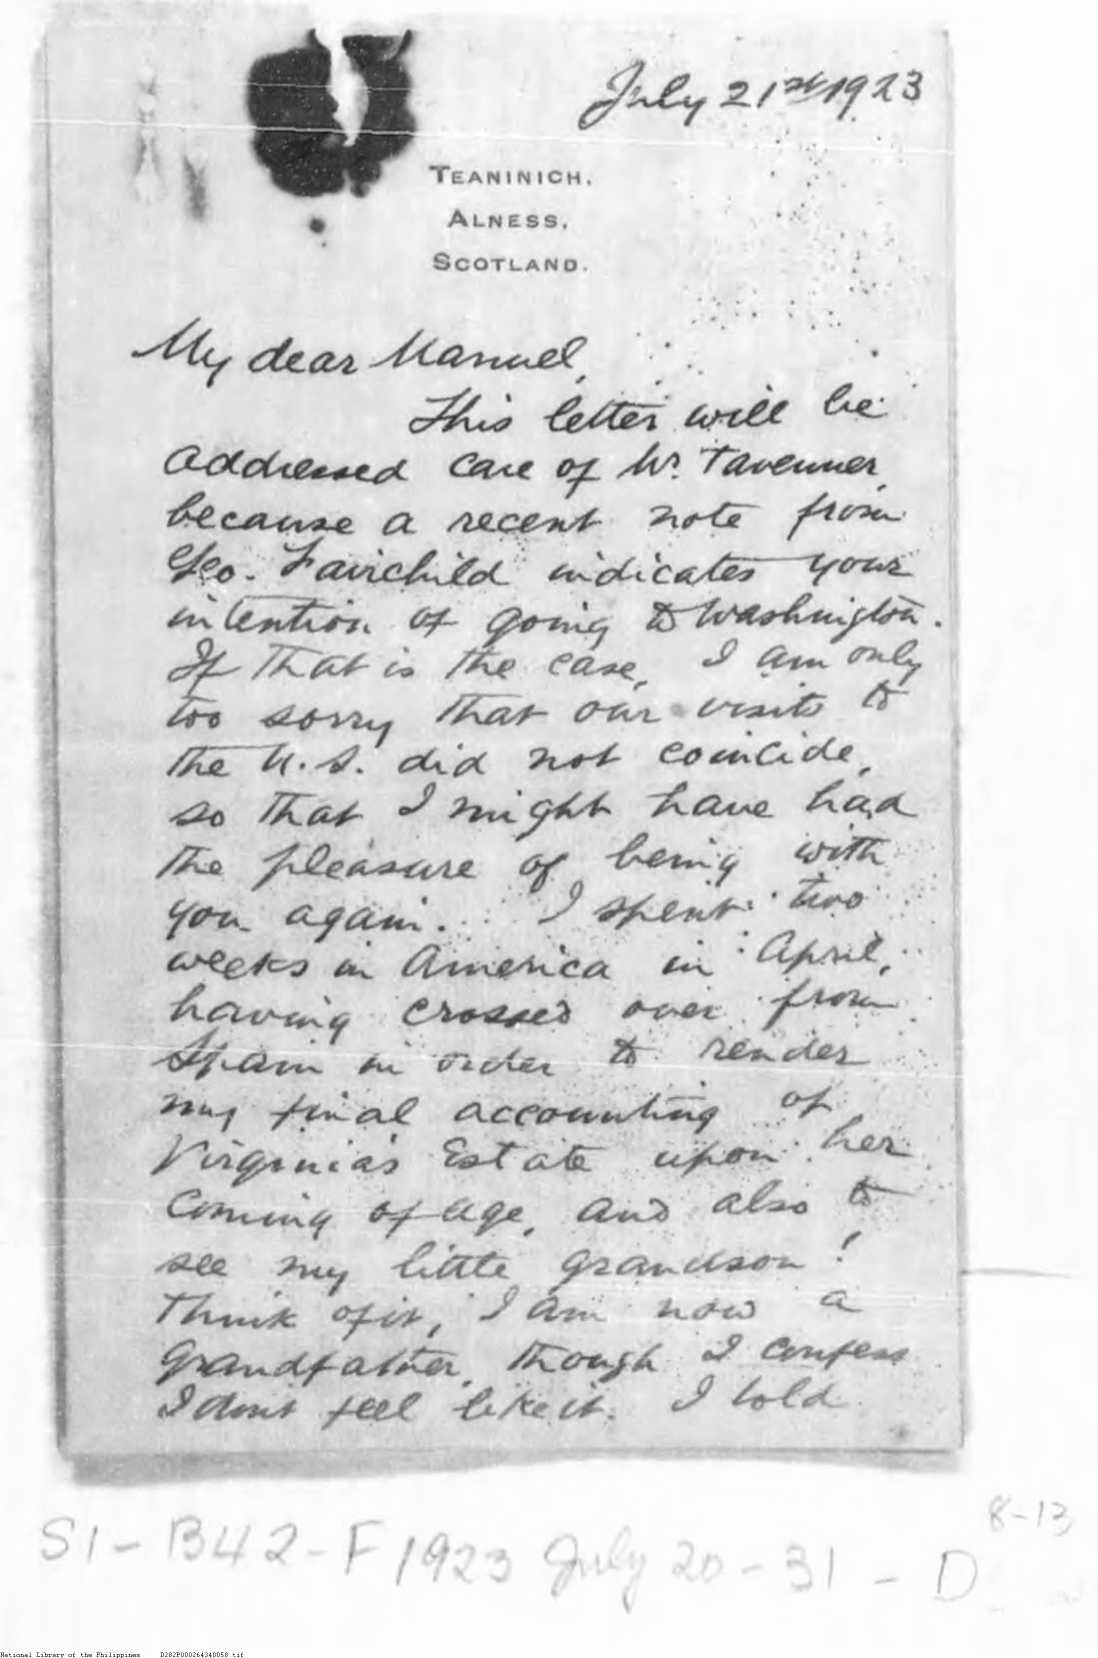 July 21st 1923
TEANINICH.
ALNESS.
SCOTLAND.
My dear Manuel,
This letter will be
addressed care of Mr. Tavenner,
because a recent note from
Geo. Fairchild indicates your
intention of going to Washington.
If that is the case, I am only
too sorry that our visits to
the U.S. did not coincide,
so that I might have had
the pleasure of being with
you again. I spent two
weeks in America in April,
having crossed over from
Spain in order to render
my final accounting of
Virginia's Estate upon her
coming of age, and also to
see my little grandson!
Think of it, I am now a
grandfather, though I confess
I dont feel like it. I told
8-13
S1-B42-F1923 July 20-31-D
National Library of the Philippines D282P000264340058.tif